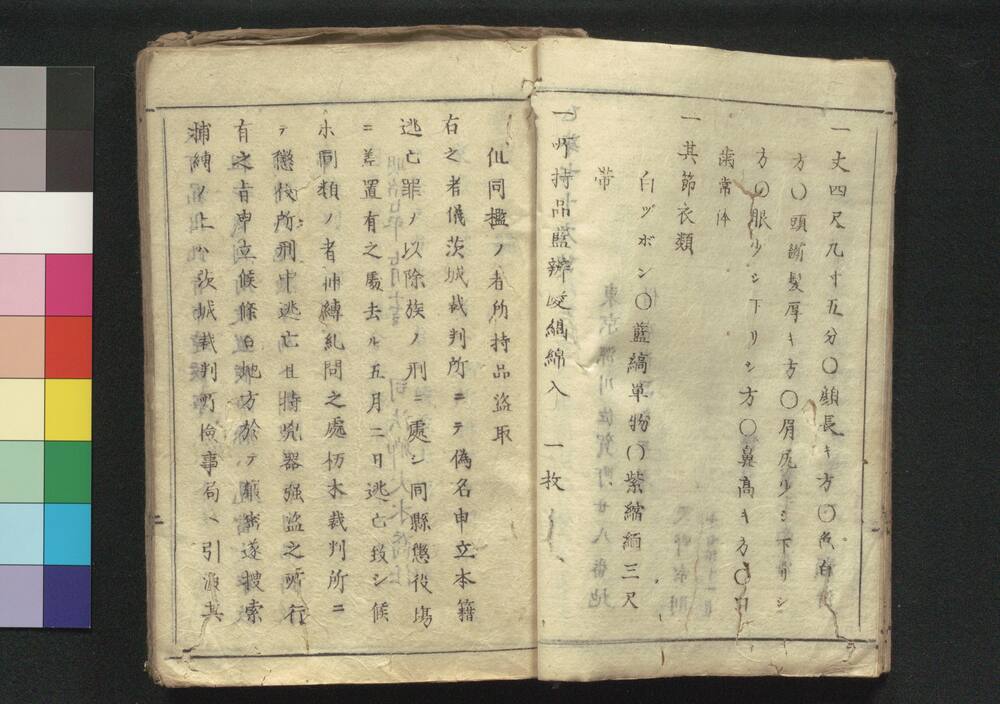 一丈四尺九寸五分〇顔長キ方〇色白
方〇頭斬髪厚キ方〇眉尻少シ下リシ
方〇眼少シ下リシ方〇鼻高キ方〇口
歯常体
一其節衣類
白ヅボン〇藍縞単物〇紫縮緬三尺
帯
一所持品藍辨慶縞綿入一枚
仙同檻ノ者所持品盗取
右之者儀茨城裁判所ニテ偽名申立本籍
逃亡罪ノ以除族ノ刑ニ處シ同縣懲役場
ニ差置有之處去ル五月二日逃亡致シ候
ホ同類ノ者捕縛糺問之處栃木裁判所ニ
テ懲役所刑中逃亡且持兇器強盗之所行
有之旨申立候條各地方於テ厳密遂捜索
捕縛ノ上ハ茨城裁判所検事局ヘ引渡其